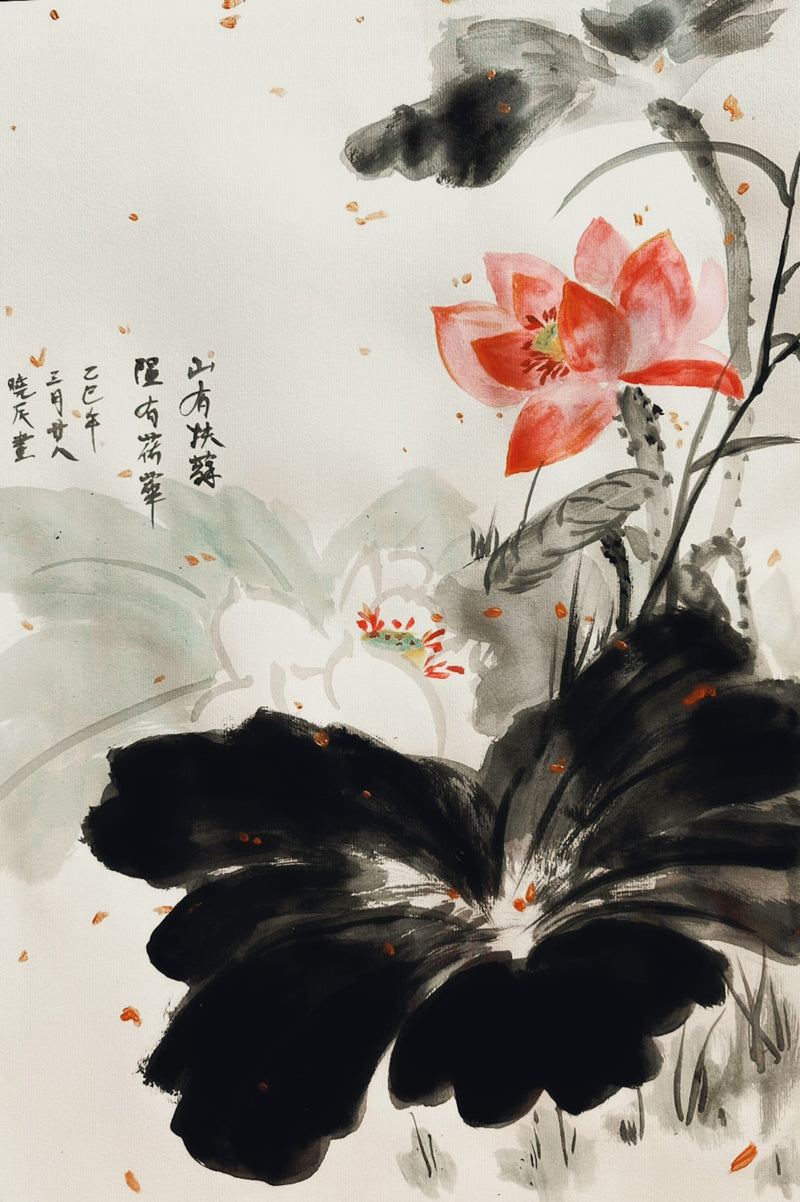 山有扶蘇
隰有荷華
乙巳年
三月廿八
晓辰畫